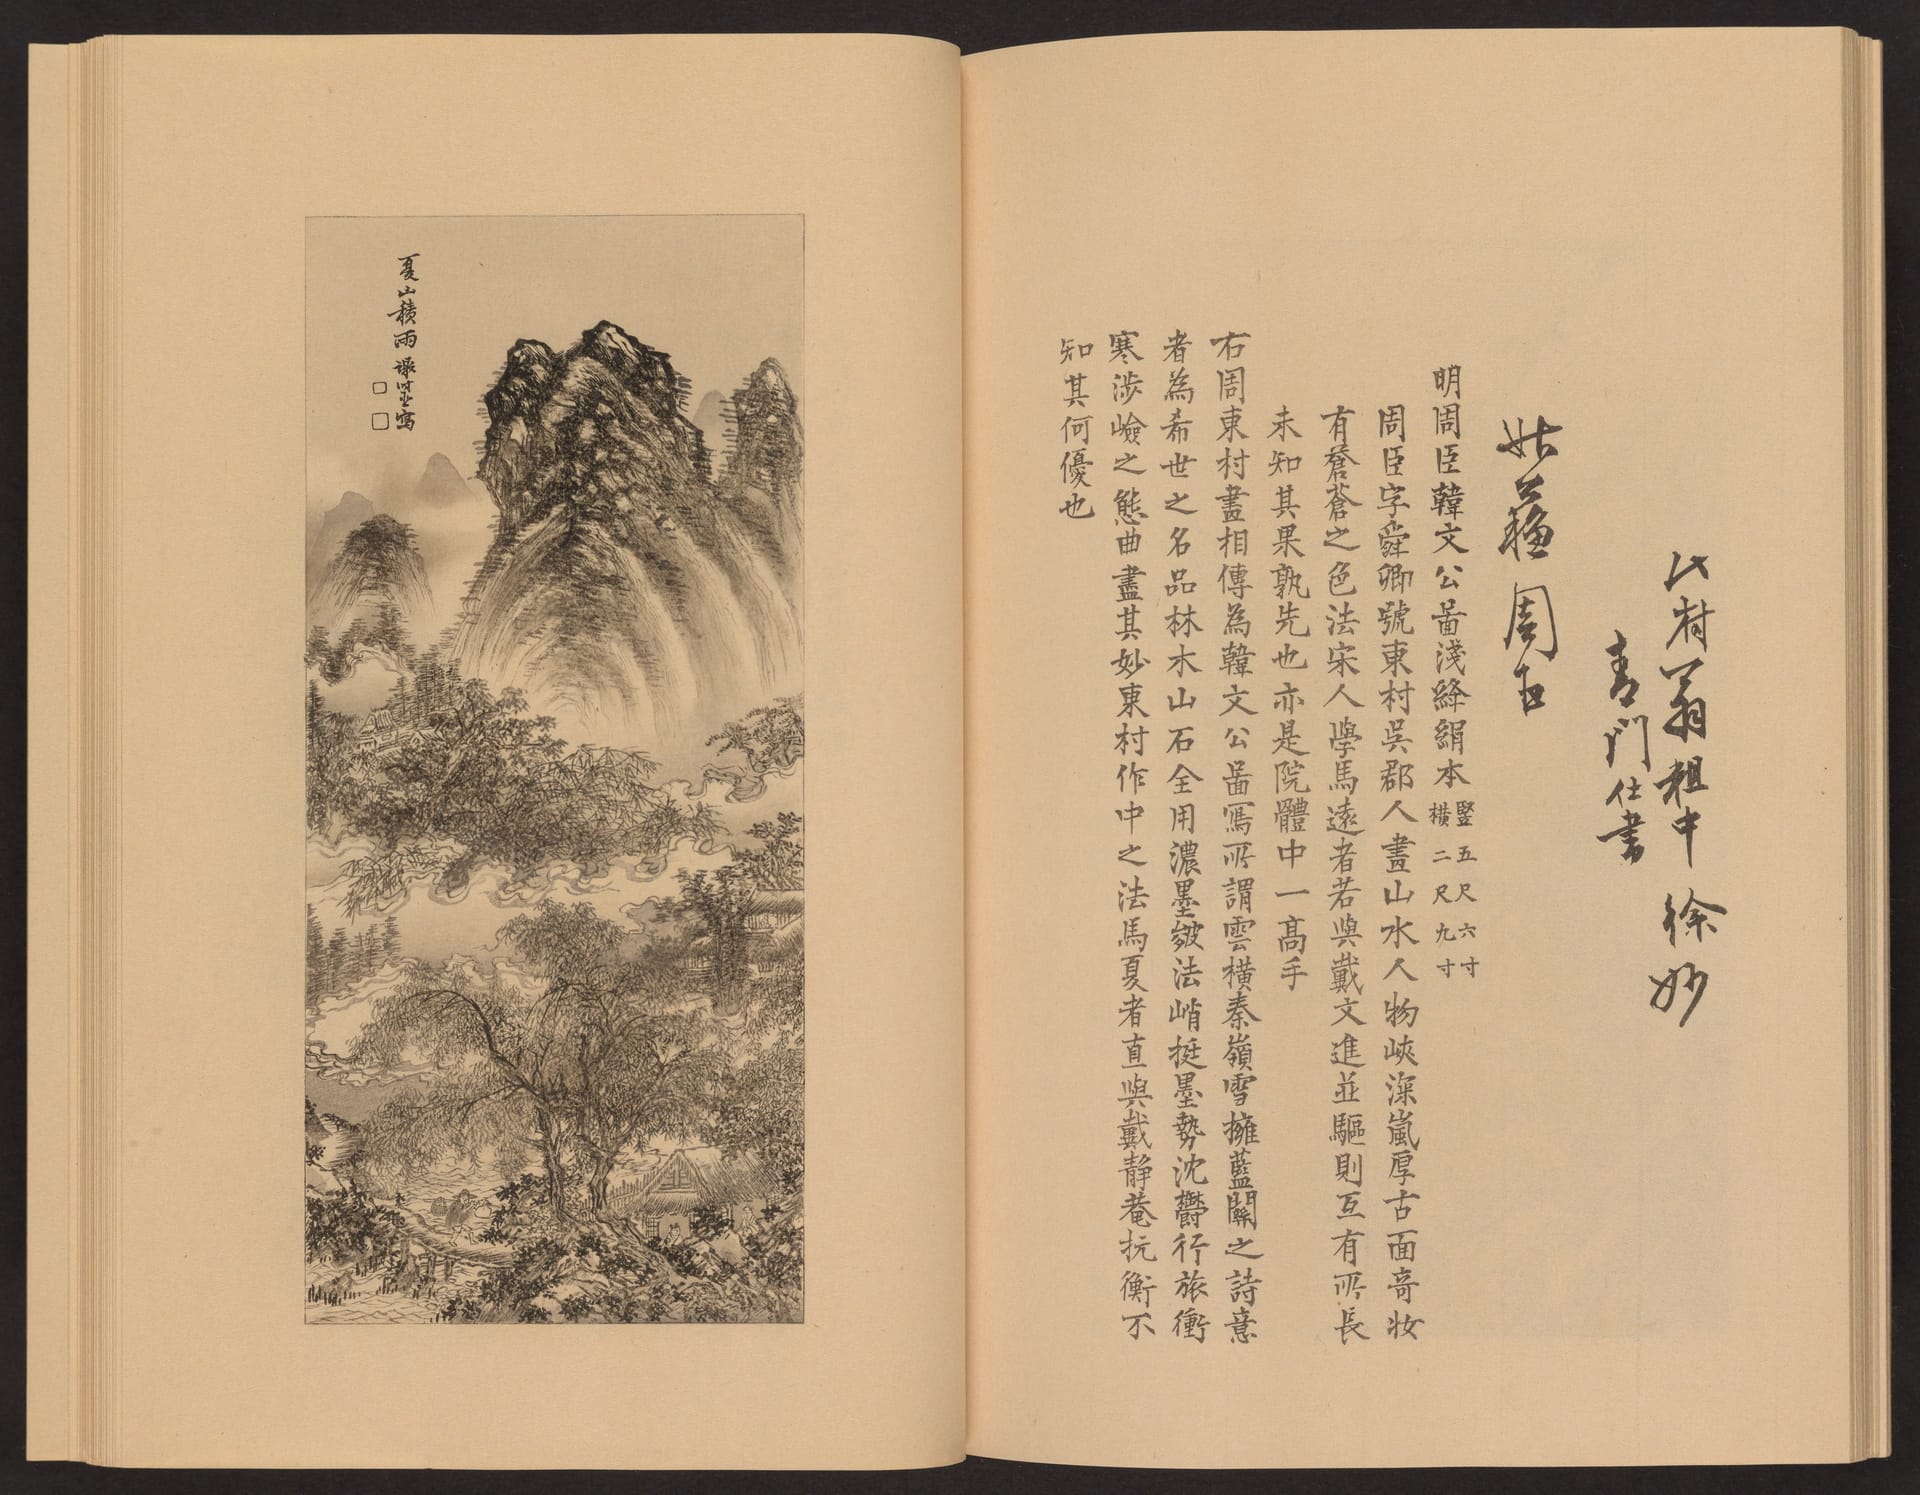 村翁粗中徐妙
青門仕書
姑蘇周臣
明周臣韓文公啚淺絳絹本竪五尺六寸
橫二尺九寸
周臣字舜卿號東村吳郡人畫山水人物峽深嵐厚古面奇妝
有蒼蒼之色法宋人學馬遠者若與戴文進並驅則互有所長
未知其果孰先也亦是院體中一高手
右周東村畫相傳為韓文公啚寫所謂雲橫秦嶺雪擁藍關之詩意
者為希世之名品林木山石全用濃墨皴法峭挺墨勢沈鬱行旅衝
寒涉嶮之態曲盡其妙東村作中之法馬夏者直與戴靜菴抗衡不
知其何優也
夏山積雨
寫